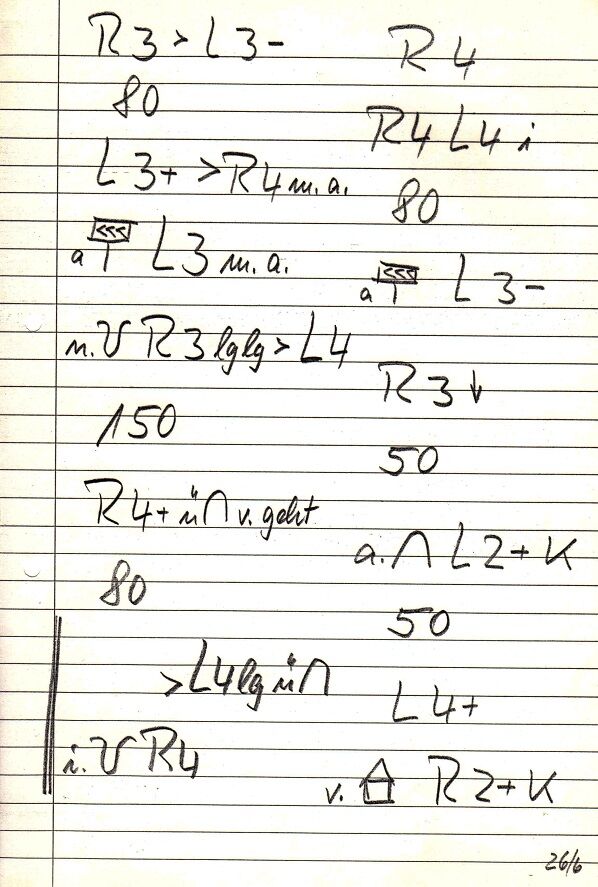 R3 > L3-
80
L3+ >R4 m.a.
a <<< L3 m.a.
n. R3 lglg > L4
150
R4+ ü∩ v. geht
80
>L4 lg ü∩
i. R4
R4
R4 L4 i
80
a <<< L3-
R3↓
50
a.∩ L2+ K
50
L4+
v. R2+ K
26/6